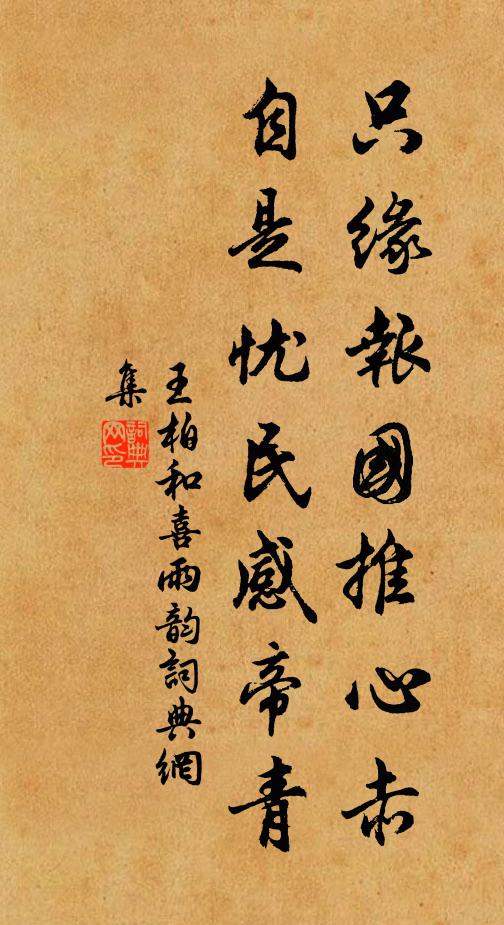 只緣報國推心赤
自是忧民感帝青
王柏和喜雨韵詞典網
集
詞典
网印